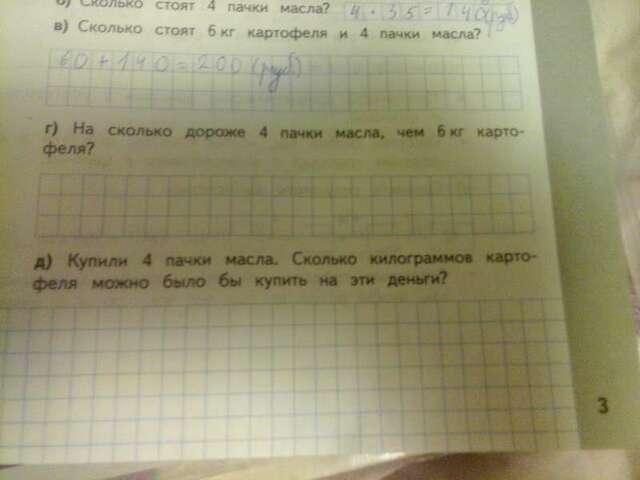 б) Сколько стоят 4 пачки масла? 4 · 35 = 140 (руб)
в) Сколько стоят 6 кг картофеля и 4 пачки масла?
60 + 140 = 200 (руб)
г) На сколько дороже 4 пачки масла, чем 6 кг карто-
феля?
д) Купили 4 пачки масла. Сколько килограммов карто-
феля можно было бы купить на эти деньги?
3